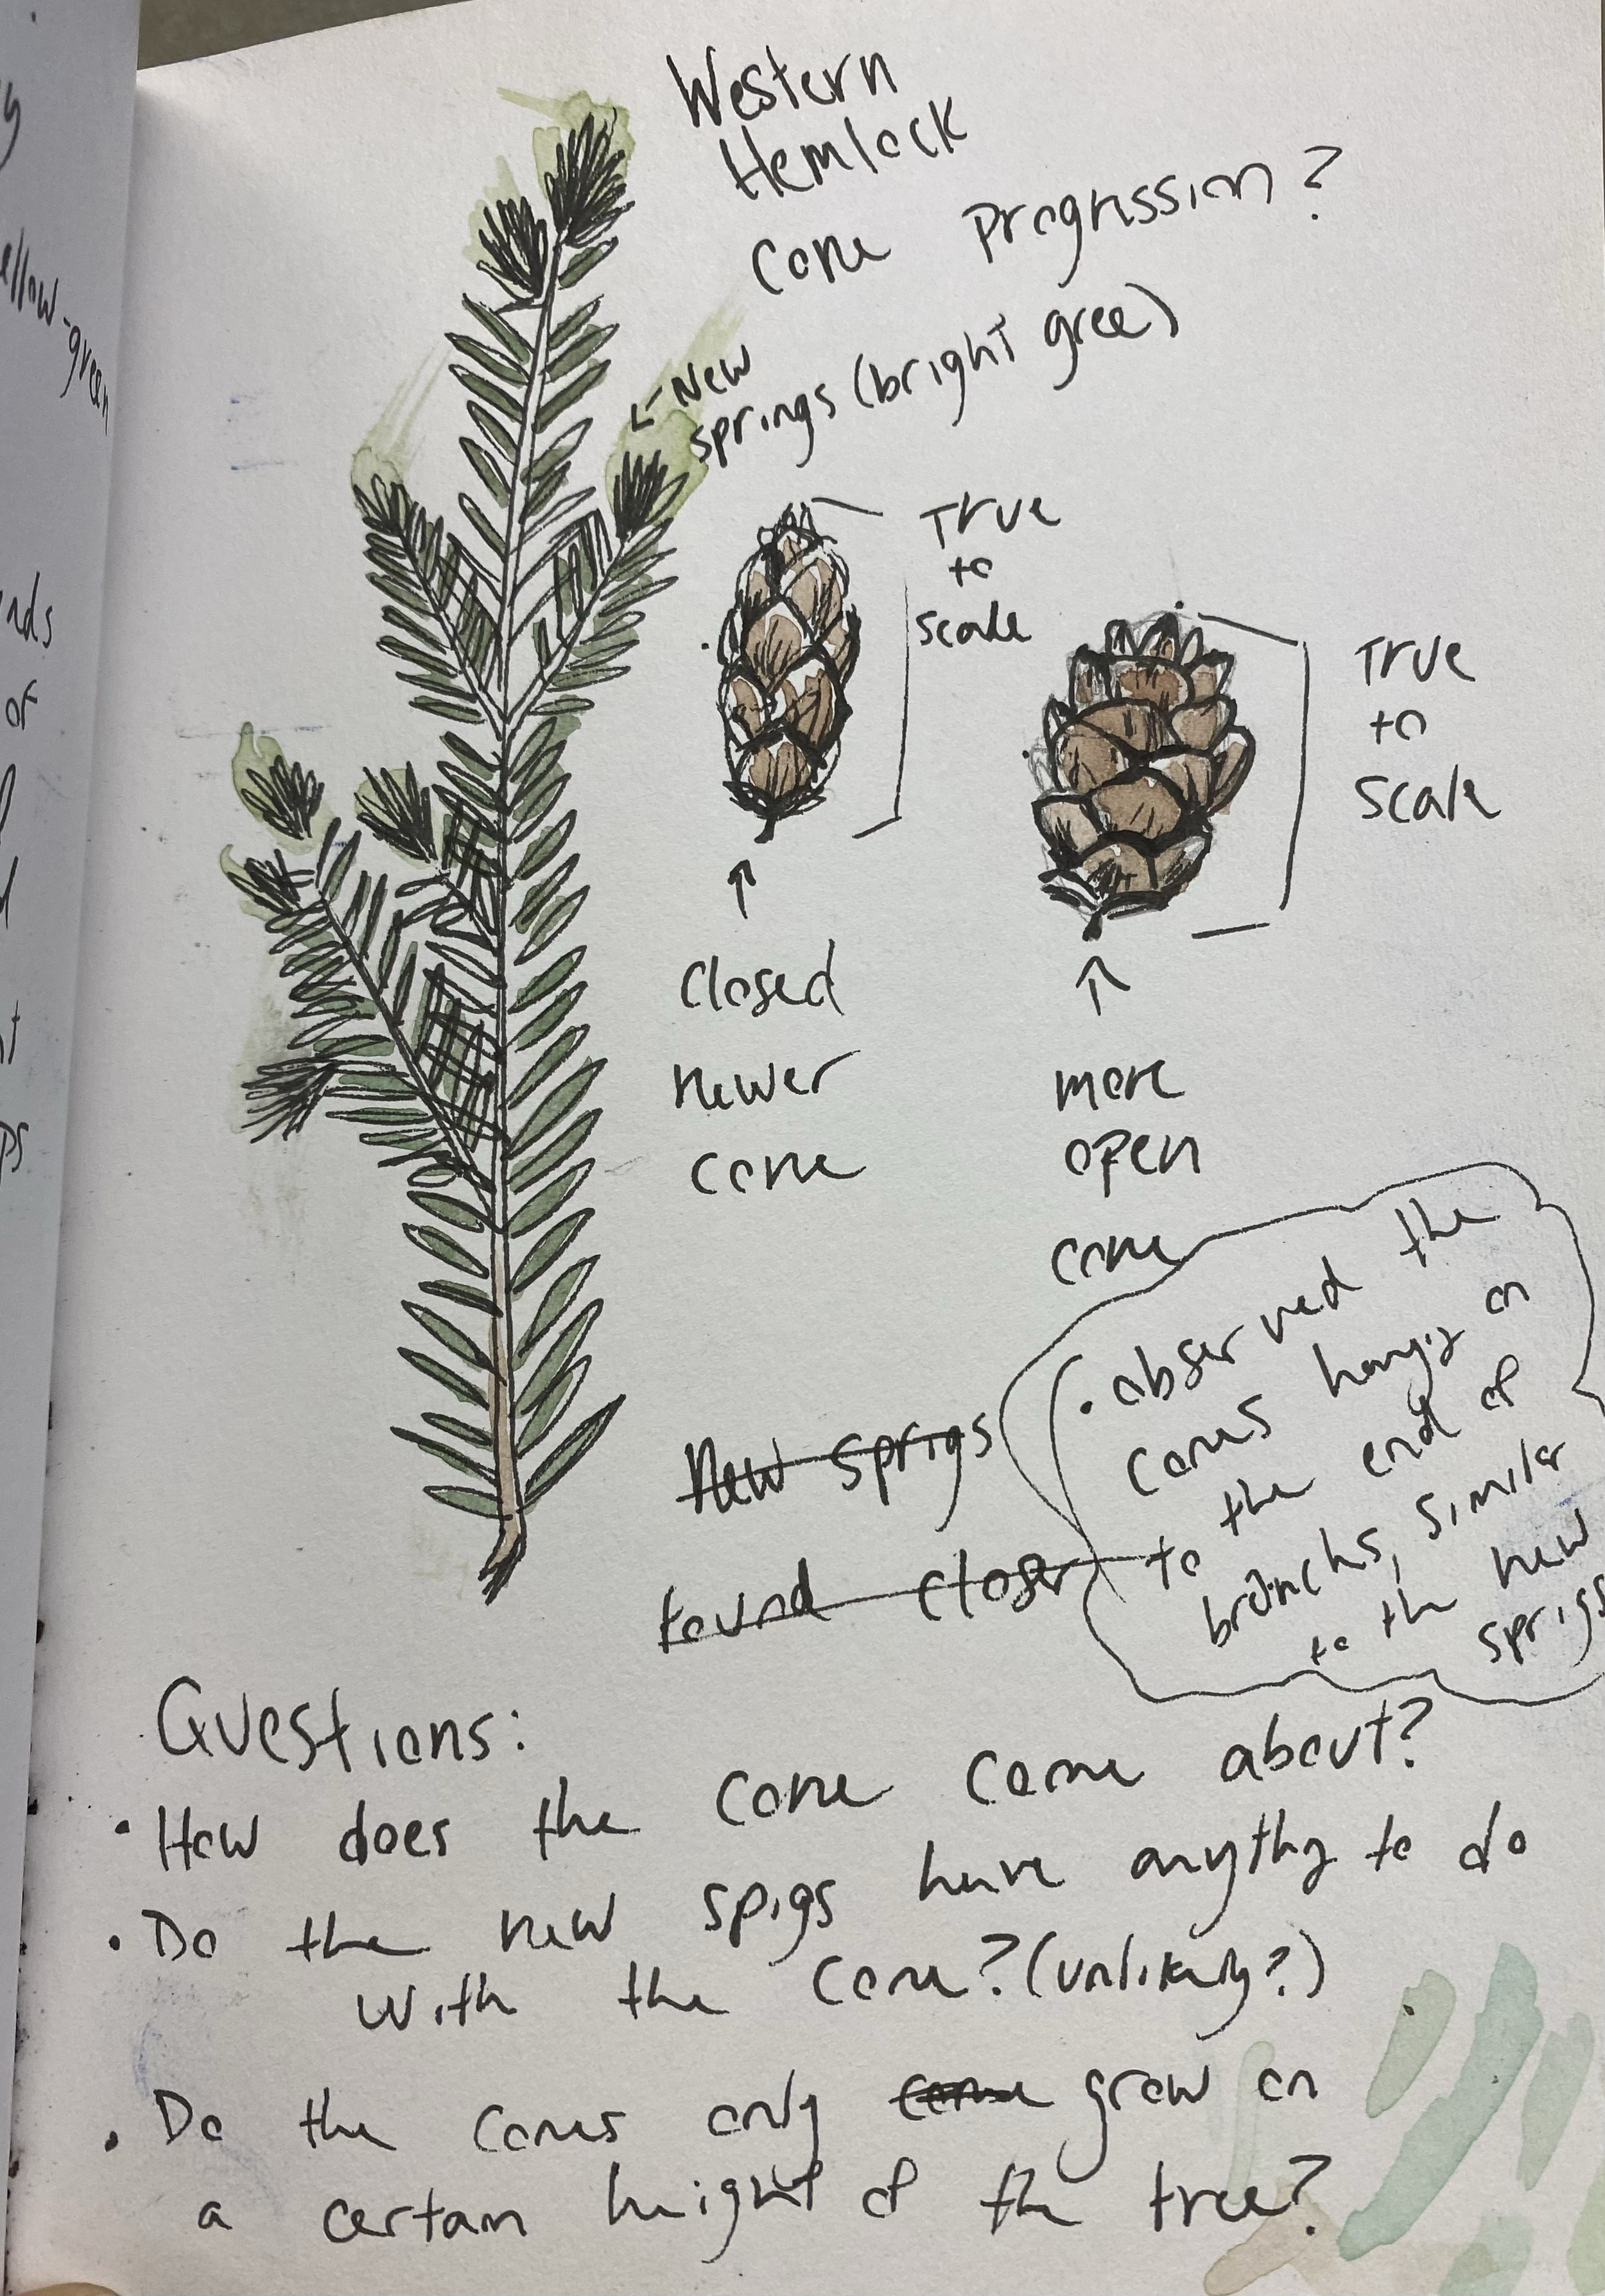 Western
Hemlock
Cone Progression?
← New
springs (bright gree)
True
to
scale
True
to
scale
↑
closed
newer
cone
↑
more
open
cone
• observed the
cones hangig on
to the end of
branchs, similar
to the new
sprigs
New sprigs
found closer
Questions:
• How does the cone come about?
• Do the new spigs have anythg to do
with the cone? (unlikely?)
• Do the cones only come grow on
a certain height of the tree?
ellow-green
nds
of
ps